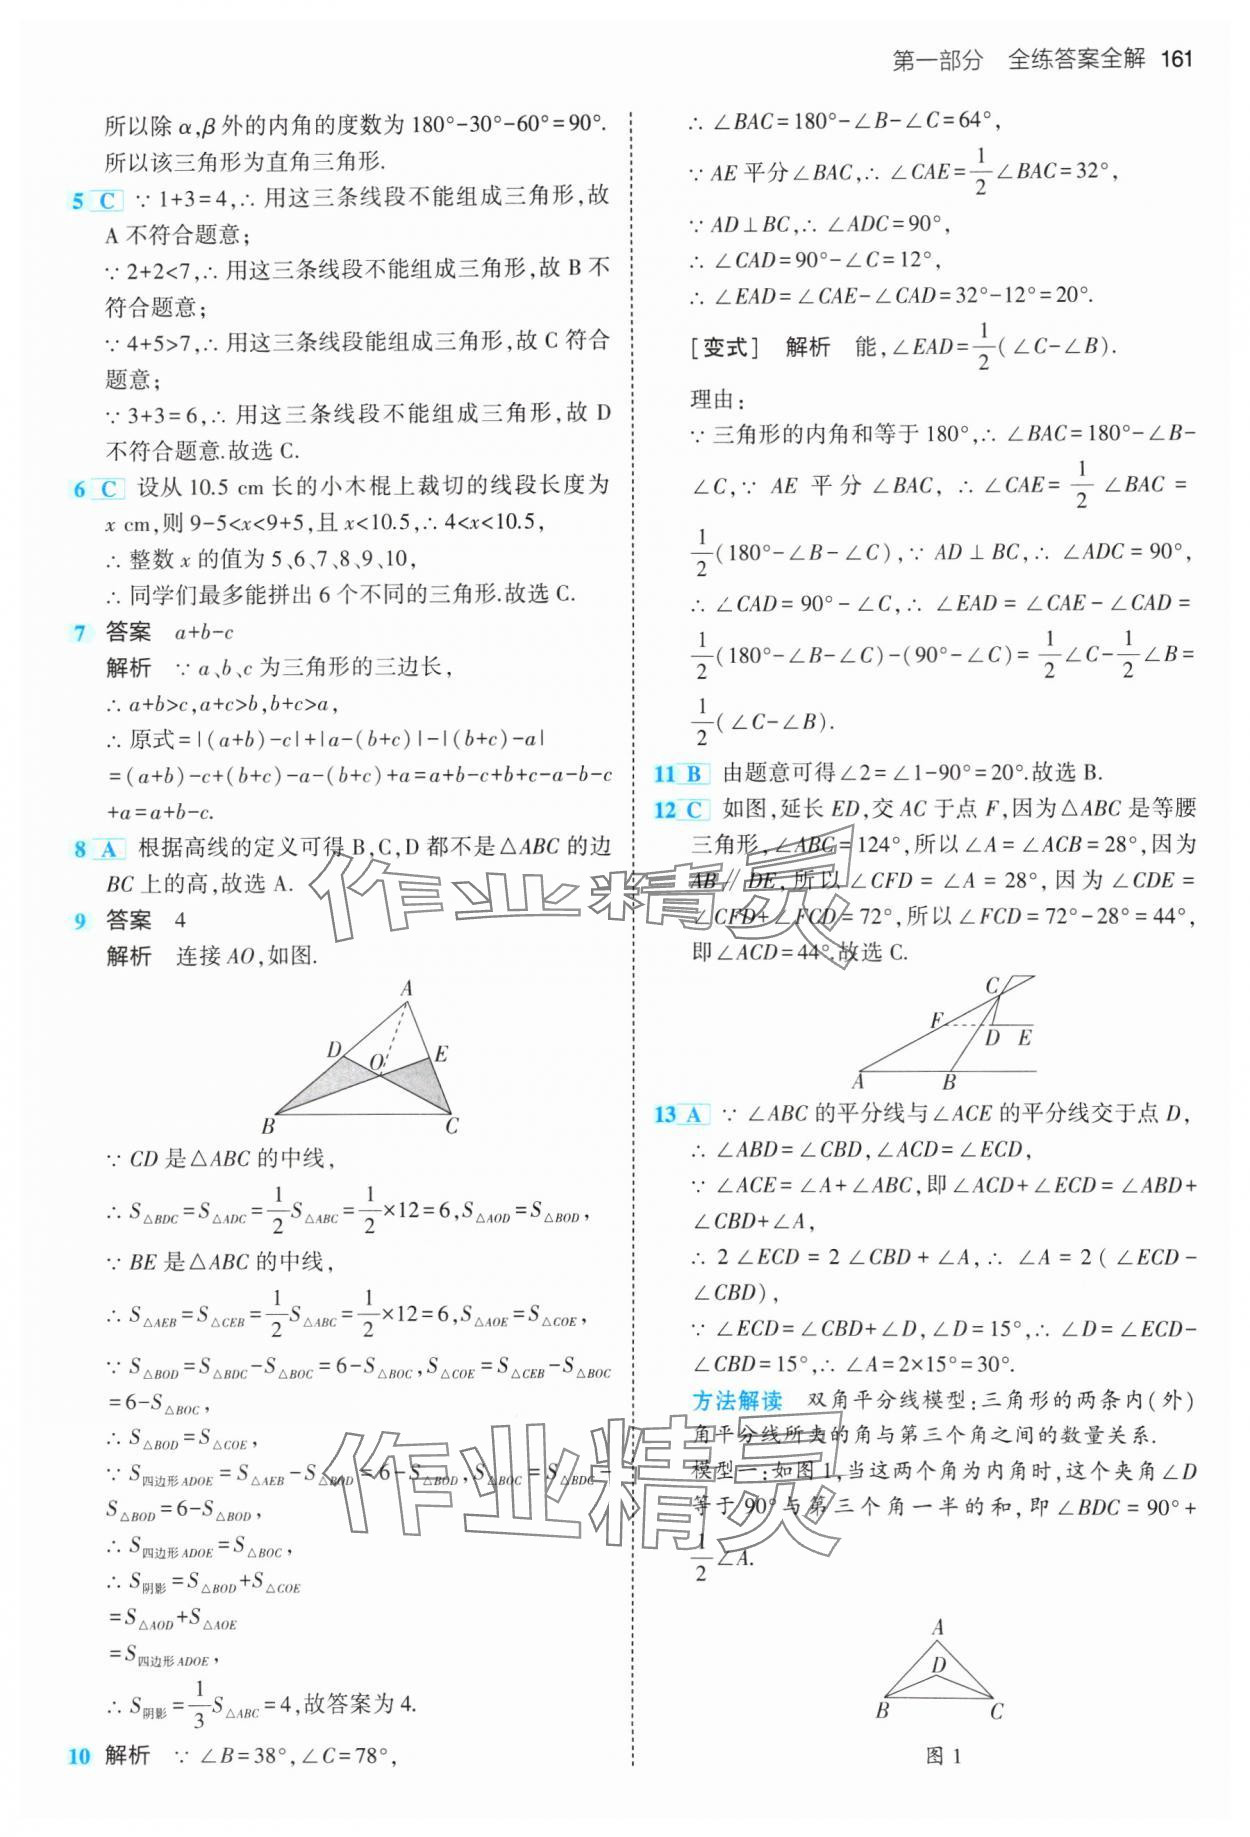 第一部分　全练答案全解　161
所以除 α,β 外的内角的度数为 180°-30°-60°=90°.
所以该三角形为直角三角形.
5 C ∵ 1+3=4,∴ 用这三条线段不能组成三角形,故
A 不符合题意;
∵ 2+2<7,∴ 用这三条线段不能组成三角形,故 B 不
符合题意;
∵ 4+5>7,∴ 用这三条线段能组成三角形,故 C 符合
题意;
∵ 3+3=6,∴ 用这三条线段不能组成三角形,故 D
不符合题意.故选 C.
6 C 设从 10.5 cm 长的小木棍上裁切的线段长度为
x cm,则 9-5<x<9+5,且 x<10.5,∴ 4<x<10.5,
∴ 整数 x 的值为 5、6、7、8、9、10,
∴ 同学们最多能拼出 6 个不同的三角形.故选 C.
7 答案　a+b-c
解析　∵ a、b、c 为三角形的三边长,
∴ a+b>c,a+c>b,b+c>a,
∴ 原式=|(a+b)-c|+|a-(b+c)|-|(b+c)-a|
=(a+b)-c+(b+c)-a-(b+c)+a=a+b-c+b+c-a-b-c
+a=a+b-c.
8 A 根据高线的定义可得 B,C,D 都不是△ABC 的边
BC 上的高,故选 A.
9 答案　4
解析　连接 AO,如图.
A
D O E
B C
∵ CD 是△ABC 的中线,
∴ S△BDC=S△ADC=1/2 S△ABC=1/2×12=6,S△AOD=S△BOD,
∵ BE 是△ABC 的中线,
∴ S△AEB=S△CEB=1/2 S△ABC=1/2×12=6,S△AOE=S△COE,
∵ S△BOD=S△BDC-S△BOC=6-S△BOC,S△COE=S△CEB-S△BOC
=6-S△BOC,
∴ S△BOD=S△COE,
∵ S四边形ADOE=S△AEB-S△BOD=6-S△BOD,S△BOC=S△BDC-
S△BOD=6-S△BOD,
∴ S四边形ADOE=S△BOC,
∴ S阴影=S△BOD+S△COE
=S△AOD+S△AOE
=S四边形ADOE,
∴ S阴影=1/3 S△ABC=4,故答案为 4.
10 解析　∵ ∠B=38°,∠C=78°,
∴ ∠BAC=180°-∠B-∠C=64°,
∵ AE 平分∠BAC,∴ ∠CAE=1/2∠BAC=32°,
∵ AD⊥BC,∴ ∠ADC=90°,
∴ ∠CAD=90°-∠C=12°,
∴ ∠EAD=∠CAE-∠CAD=32°-12°=20°.
[变式]　解析　能,∠EAD=1/2(∠C-∠B).
理由:
∵ 三角形的内角和等于 180°,∴ ∠BAC=180°-∠B-
∠C,∵ AE 平分∠BAC,∴ ∠CAE=1/2∠BAC=
1/2(180°-∠B-∠C),∵ AD⊥BC,∴ ∠ADC=90°,
∴ ∠CAD=90°-∠C,∴ ∠EAD=∠CAE-∠CAD=
1/2(180°-∠B-∠C)-(90°-∠C)=1/2∠C-1/2∠B=
1/2(∠C-∠B).
11 B 由题意可得∠2=∠1-90°=20°.故选 B.
12 C 如图,延长 ED,交 AC 于点 F,因为△ABC 是等腰
三角形,∠ABC=124°,所以∠A=∠ACB=28°,因为
AB∥DE,所以∠CFD=∠A=28°,因为∠CDE=
∠CFD+∠FCD=72°,所以∠FCD=72°-28°=44°,
即∠ACD=44°.故选 C.
C
F D E
A B
13 A ∵ ∠ABC 的平分线与∠ACE 的平分线交于点 D,
∴ ∠ABD=∠CBD,∠ACD=∠ECD,
∵ ∠ACE=∠A+∠ABC,即∠ACD+∠ECD=∠ABD+
∠CBD+∠A,
∴ 2∠ECD=2∠CBD+∠A,∴ ∠A=2(∠ECD-
∠CBD),
∵ ∠ECD=∠CBD+∠D,∠D=15°,∴ ∠D=∠ECD-
∠CBD=15°,∴ ∠A=2×15°=30°.
方法解读　双角平分线模型:三角形的两条内(外)
角平分线所夹的角与第三个角之间的数量关系.
模型一:如图1,当这两个角为内角时,这个夹角∠D
等于 90°与第三个角一半的和,即∠BDC=90°+
1/2∠A.
A
D
B C
图 1
作业精灵
作业精灵